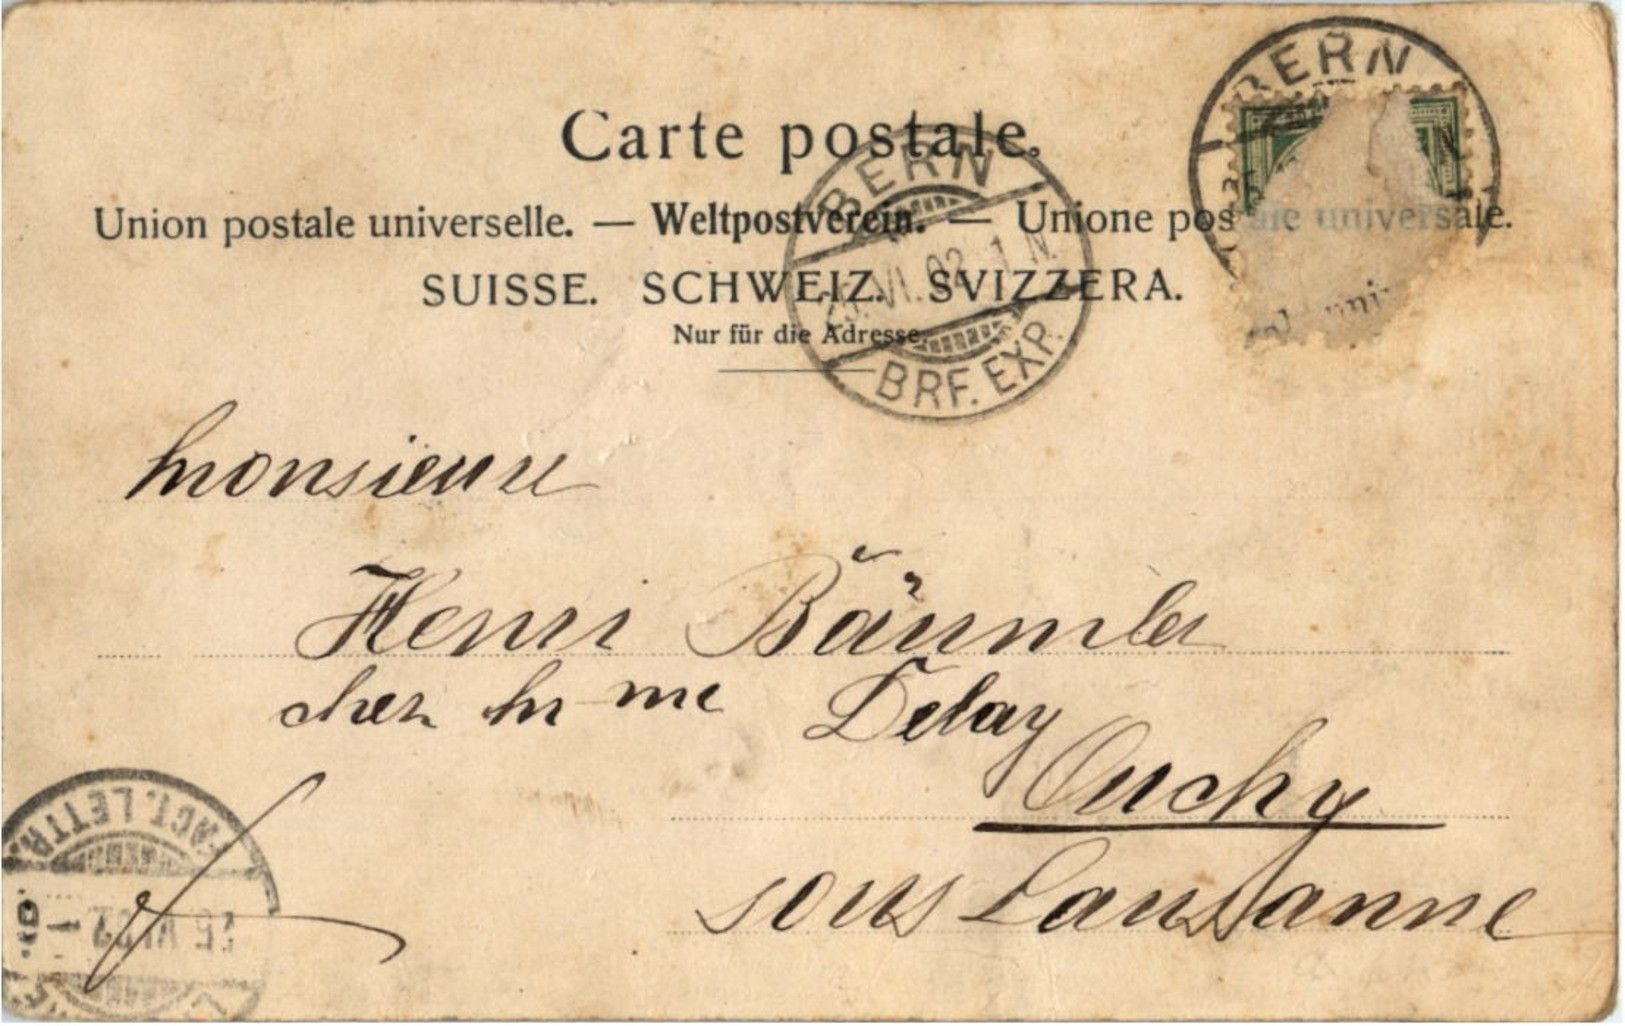 Carte postale.
Union postale universelle. — Weltpostverein. — Unione postale universale.
SUISSE. SCHWEIZ. SVIZZERA.
Nur für die Adresse.
BERN
BERN
VI. 02. 1 N.
BRF. EXP.
Monsieur
Henri Bäumler
chez Mme Delay
Ouchy
sous Lausanne
LETTR.
VI 02